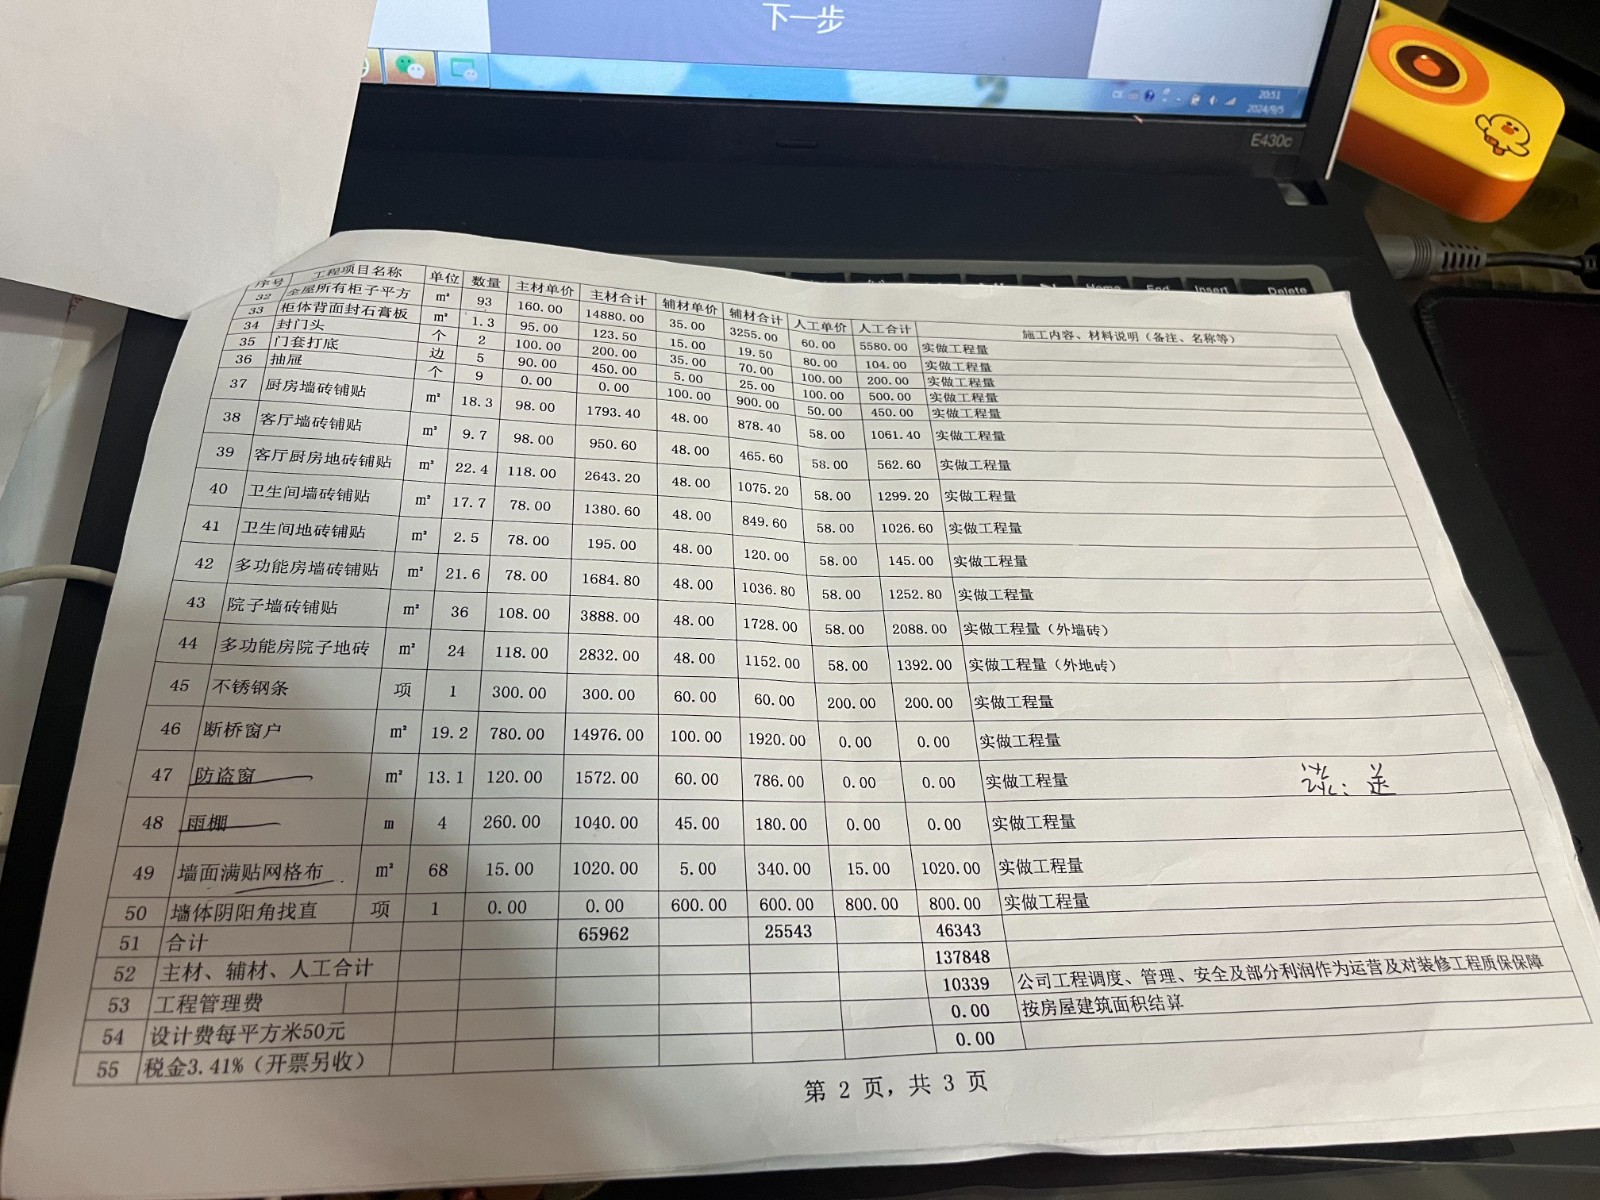 下一步
20:51
2024/9/5
E430c
Home End Insert Delete
序号 工程项目名称 单位 数量 主材单价 主材合计 辅材单价 辅材合计 人工单价 人工合计 施工内容、材料说明（备注、名称等）
32 全屋所有柜子平方 m² 93 160.00 14880.00 35.00 3255.00 60.00 5580.00 实做工程量
33 柜体背面封石膏板 m² 1.3 95.00 123.50 15.00 19.50 80.00 104.00 实做工程量
34 封门头 个 2 100.00 200.00 35.00 70.00 100.00 200.00 实做工程量
35 门套打底 边 5 90.00 450.00 5.00 25.00 100.00 500.00 实做工程量
36 抽屉 个 9 0.00 0.00 100.00 900.00 50.00 450.00 实做工程量
37 厨房墙砖铺贴 m² 18.3 98.00 1793.40 48.00 878.40 58.00 1061.40 实做工程量
38 客厅墙砖铺贴 m² 9.7 98.00 950.60 48.00 465.60 58.00 562.60 实做工程量
39 客厅厨房地砖铺贴 m² 22.4 118.00 2643.20 48.00 1075.20 58.00 1299.20 实做工程量
40 卫生间墙砖铺贴 m² 17.7 78.00 1380.60 48.00 849.60 58.00 1026.60 实做工程量
41 卫生间地砖铺贴 m² 2.5 78.00 195.00 48.00 120.00 58.00 145.00 实做工程量
42 多功能房墙砖铺贴 m² 21.6 78.00 1684.80 48.00 1036.80 58.00 1252.80 实做工程量
43 院子墙砖铺贴 m² 36 108.00 3888.00 48.00 1728.00 58.00 2088.00 实做工程量（外墙砖）
44 多功能房院子地砖 m² 24 118.00 2832.00 48.00 1152.00 58.00 1392.00 实做工程量（外地砖）
45 不锈钢条 项 1 300.00 300.00 60.00 60.00 200.00 200.00 实做工程量
46 断桥窗户 m² 19.2 780.00 14976.00 100.00 1920.00 0.00 0.00 实做工程量
47 防盗窗 m² 13.1 120.00 1572.00 60.00 786.00 0.00 0.00 实做工程量 送
48 雨棚 m 4 260.00 1040.00 45.00 180.00 0.00 0.00 实做工程量
49 墙面满贴网格布 m² 68 15.00 1020.00 5.00 340.00 15.00 1020.00 实做工程量
50 墙体阴阳角找直 项 1 0.00 0.00 600.00 600.00 800.00 800.00 实做工程量
51 合计 65962 25543 46343
52 主材、辅材、人工合计 137848
53 工程管理费 10339 公司工程调度、管理、安全及部分利润作为运营及对装修工程质保保障
54 设计费每平方米50元 0.00 按房屋建筑面积结算
55 税金3.41%（开票另收） 0.00
第 2 页，共 3 页